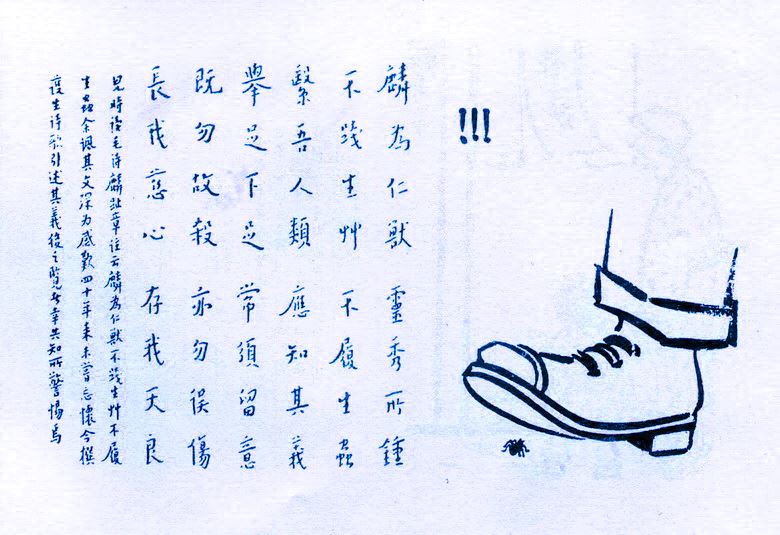 !!!
麟為仁獸 靈秀所鍾
不踐生艸 不履生蟲
繄吾人類 應知其義
舉足下足 常須留意
既勿故殺 亦勿誤傷
長我慈心 存我天良
兒時讀毛詩麟趾章注云麟為仁獸不踐生艸不履
生蟲余諷其文深为感歎四十年来未嘗忘懷今撰
護生诗歌引述其義後之覽者幸共知所警惕焉